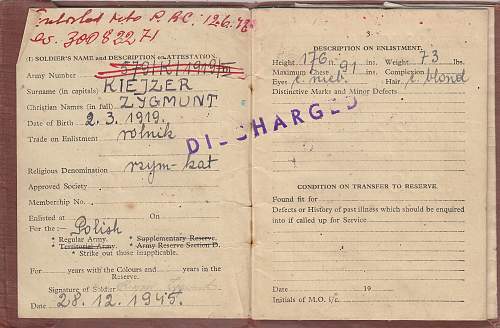 Enlisted into P.R.C. 12.6.46
No. 30082271
(I) SOLDIER'S NAME and DESCRIPTION on ATTESTATION.
Army Number
Surname (in capitals) KIEJZER
Christian Names (in full) ZYGMUNT
Date of Birth 2.3.1919.
Trade on Enlistment rolnik
Religious Denomination rzym-kat
Approved Society
Membership No.
Enlisted at On
For the :— Polish
* Regular Army. * Supplementary Reserve.
* Territorial Army. * Army Reserve Section D.
* Strike out those inapplicable.
For years with the Colours and years in the
Reserve.
Signature of Soldier
Date 28.12.1945.
DISCHARGED
3
DESCRIPTION ON ENLISTMENT.
Height 176 ins. Weight 73 lbs.
Maximum Chest 91 ins. Complexion
Eyes nieb. Hair blond
Distinctive Marks and Minor Defects
CONDITION ON TRANSFER TO RESERVE.
Found fit for
Defects or History of past illness which should be enquired
into if called up for Service
Date 19
Initials of M.O. i/c.